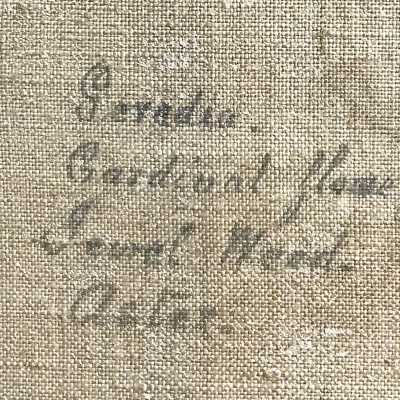 Geradia.
Cardinal flowe
Jewel Weed.
Aster.